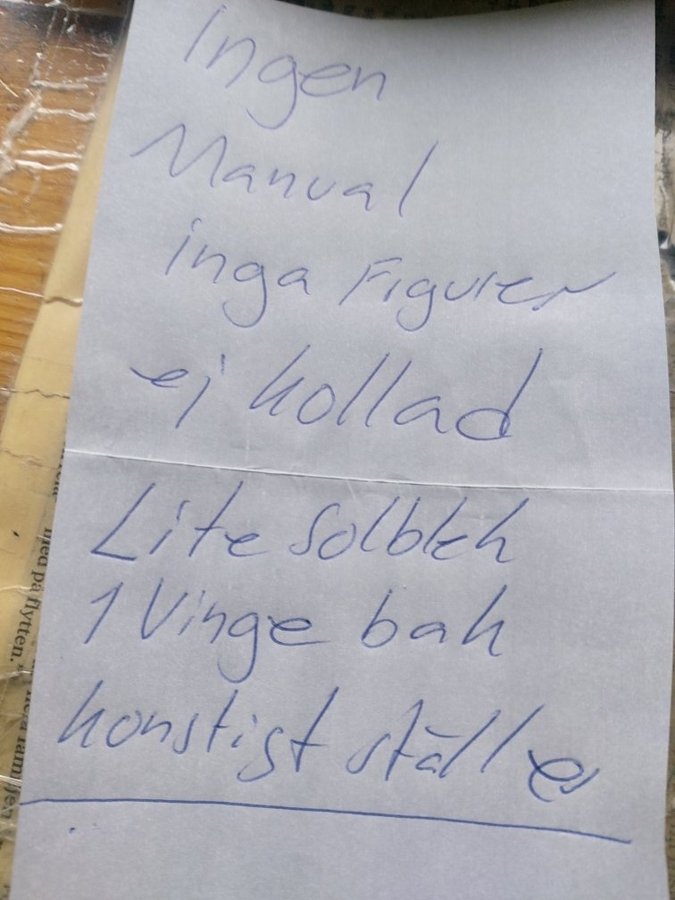 Ingen
Manual
inga Figurer
ej kollad
Lite solblek
1 Vinge bak
konstigt ställe
med på flytten.